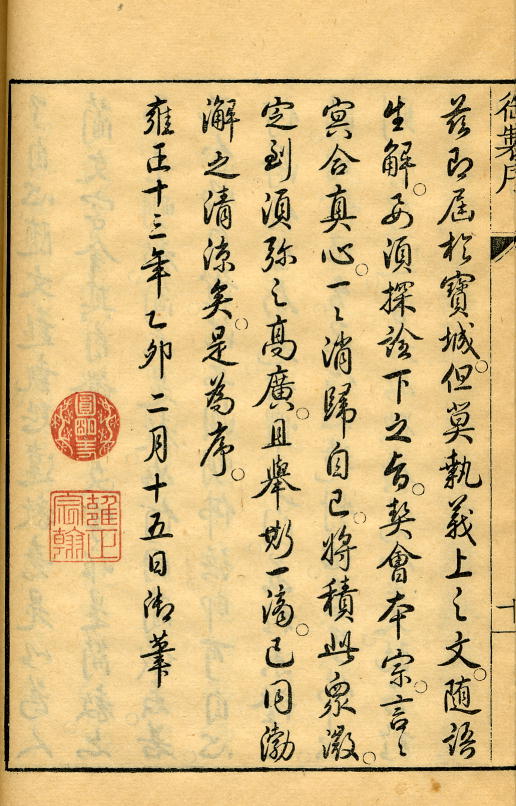 御製序
十
茲即屆於寶城。但莫執義上之文。隨語
生解。要須探詮下之旨。契會本宗。言〻
冥合真心。一〻消歸自己。將積此眾微。
定到須彌之高廣。且舉斯一滴。已同渤
澥之清涼矣。是為序。
雍正十三年乙卯二月十五日御筆
雍正宸翰